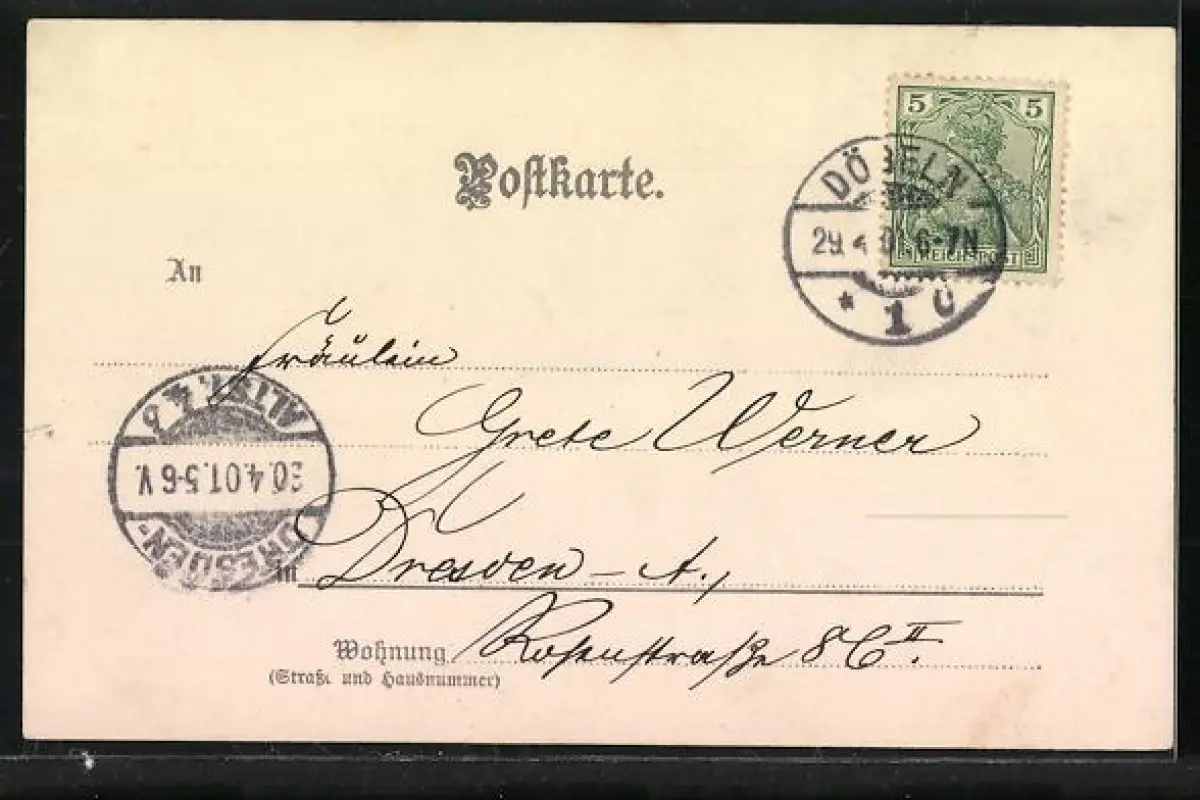 Postkarte.
5 5
REICHSPOST
DÖBELN
29 4 0 6-7N
* 1 c
An
Fräulein
Grete Werner
ALTST. 4
30.4.01.5-6 V.
DRESDEN-
in Dresden-A.,
Wohnung Rosenstraße 86 II.
(Straße und Hausnummer)